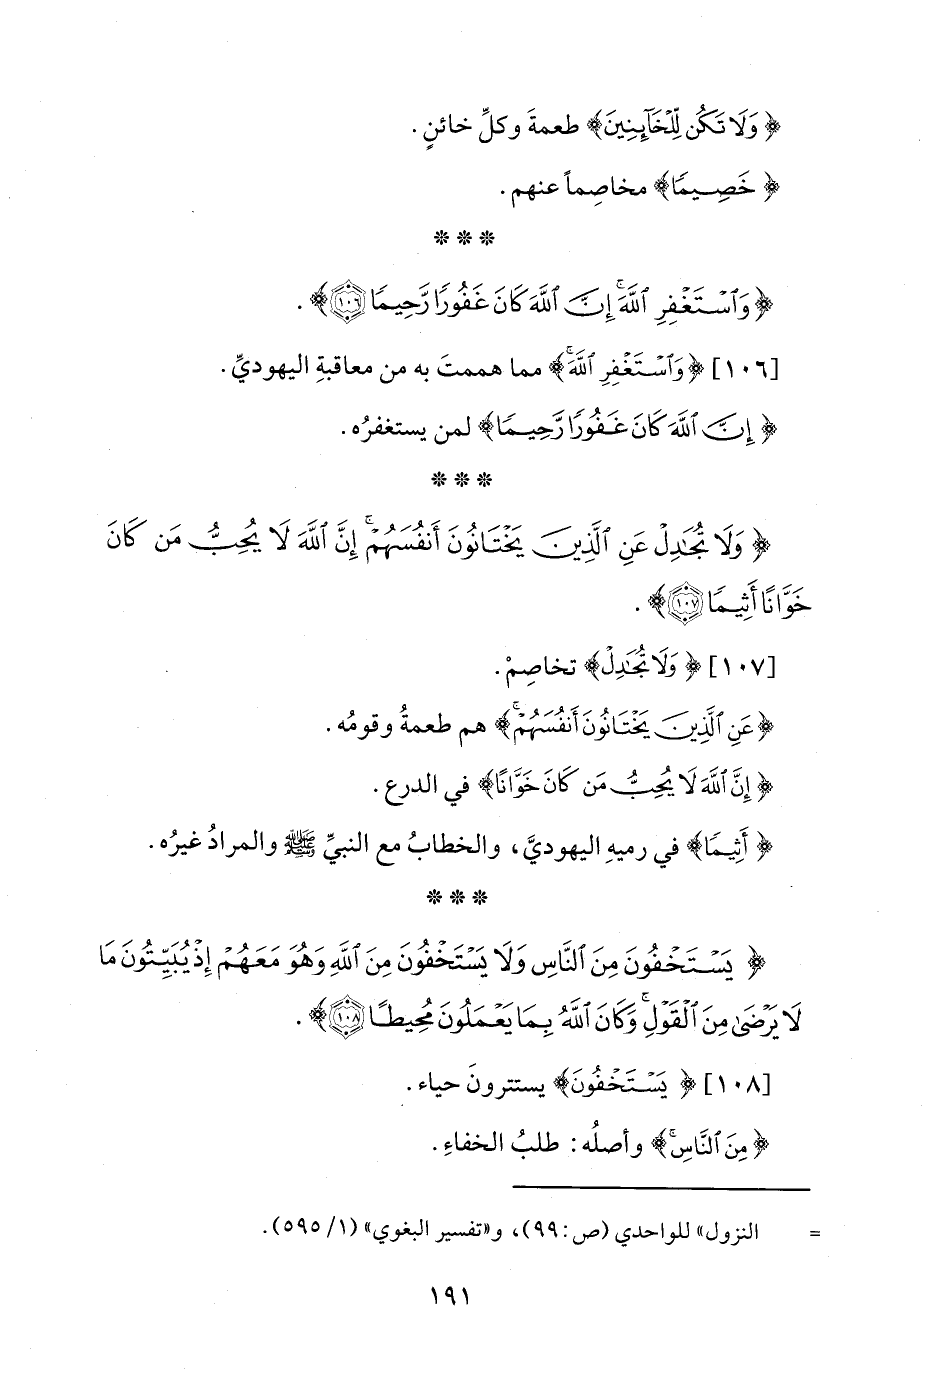 ﴿وَلَا تَكُن لِّلْخَآئِنِينَ﴾ طعمةَ وكلِّ خائنٍ.
﴿خَصِيمًا﴾ مخاصِماً عنهم.
* * *
﴿وَٱسْتَغْفِرِ ٱللَّهَ ۖ إِنَّ ٱللَّهَ كَانَ غَفُورًا رَّحِيمًا ١٠٦﴾.
[١٠٦] ﴿وَٱسْتَغْفِرِ ٱللَّهَ ۖ﴾ مما هممتَ به من معاقبةِ اليهوديِّ.
﴿إِنَّ ٱللَّهَ كَانَ غَفُورًا رَّحِيمًا﴾ لمن يستغفرُه.
* * *
﴿وَلَا تُجَٰدِلْ عَنِ ٱلَّذِينَ يَخْتَانُونَ أَنفُسَهُمْ ۚ إِنَّ ٱللَّهَ لَا يُحِبُّ مَن كَانَ
خَوَّانًا أَثِيمًا ١٠٧﴾.
[١٠٧] ﴿وَلَا تُجَٰدِلْ﴾ تخاصِمْ.
﴿عَنِ ٱلَّذِينَ يَخْتَانُونَ أَنفُسَهُمْ ۚ﴾ هم طعمةُ وقومُه.
﴿إِنَّ ٱللَّهَ لَا يُحِبُّ مَن كَانَ خَوَّانًا﴾ في الدرع.
﴿أَثِيمًا﴾ في رميهِ اليهوديَّ، والخطابُ مع النبيِّ ﷺ والمرادُ غيرُه.
* * *
﴿يَسْتَخْفُونَ مِنَ ٱلنَّاسِ وَلَا يَسْتَخْفُونَ مِنَ ٱللَّهِ وَهُوَ مَعَهُمْ إِذْ يُبَيِّتُونَ مَا
لَا يَرْضَىٰ مِنَ ٱلْقَوْلِ ۚ وَكَانَ ٱللَّهُ بِمَا يَعْمَلُونَ مُحِيطًا ١٠٨﴾.
[١٠٨] ﴿يَسْتَخْفُونَ﴾ يستترونَ حياء.
﴿مِنَ ٱلنَّاسِ ۚ﴾ وأصلُه: طلبُ الخفاءِ.
= النزول» للواحدي (ص: ٩٩)، و«تفسير البغوي» (١/ ٥٩٥).
١٩١